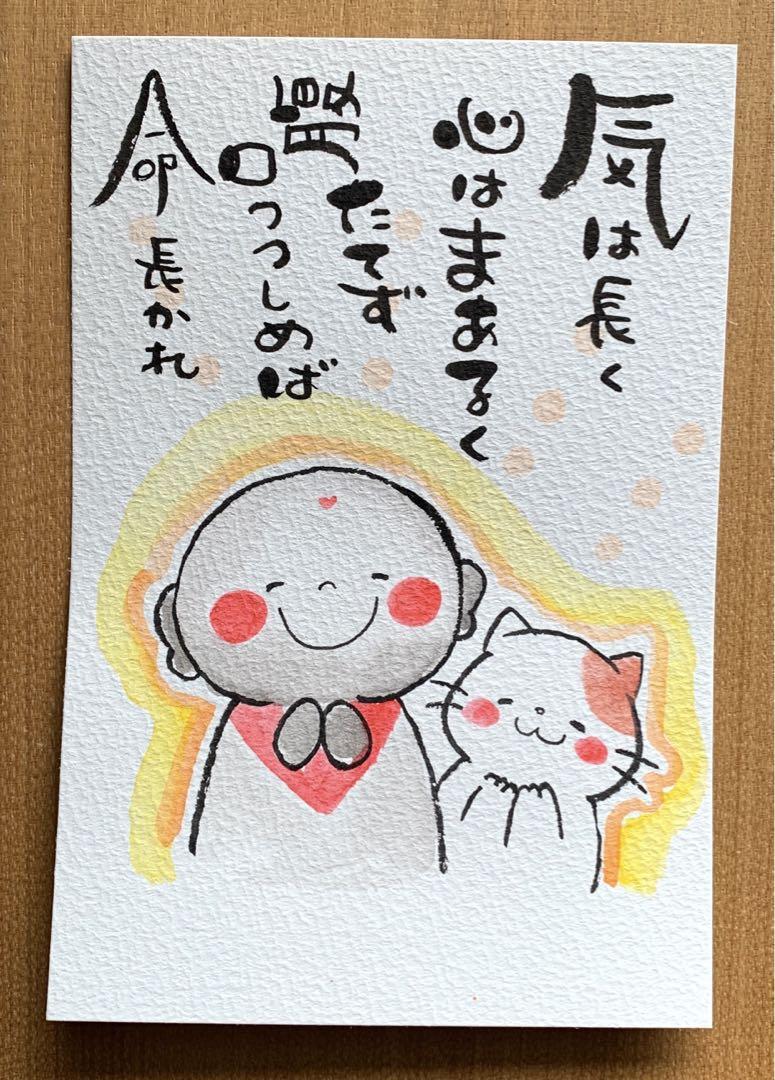 気は長く
心はまあるく
腹たてず
口つつしめば
命長かれ